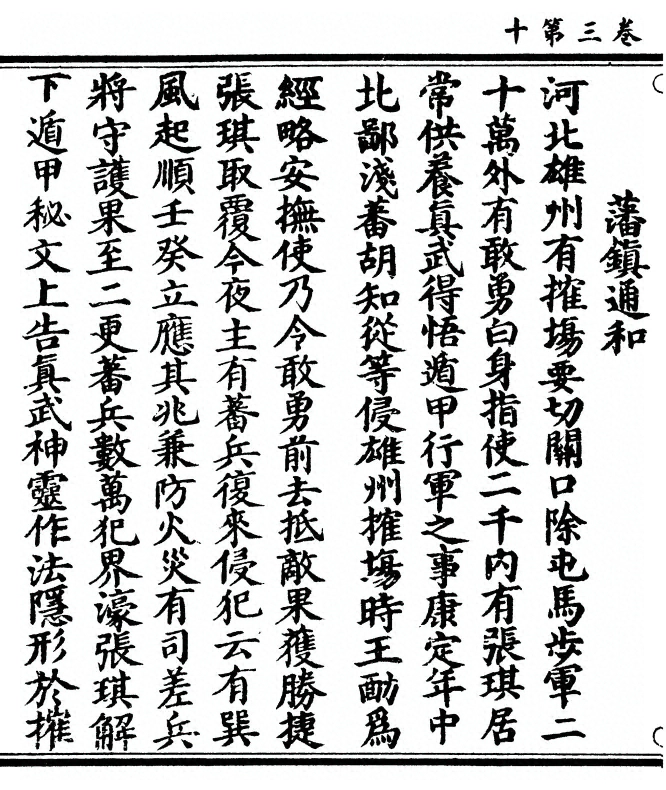 卷三第十
藩鎮通和
河北雄州有搉塲要切關口除屯馬步軍二
十萬外有敢勇白身指使二千內有張琪居
常供養眞武得悟遁甲行軍之事康定年中
北鄙淺蕃胡知從等侵雄州搉塲時王勔爲
經略安撫使乃令敢勇前去抵敵果獲勝捷
張琪取覆今夜主有蕃兵復來侵犯云有巽
風起順壬癸立應其兆兼防火災有司差兵
將守護果至二更蕃兵數萬犯界濠張琪解
下遁甲秘文上告眞武神靈作法隱形於搉